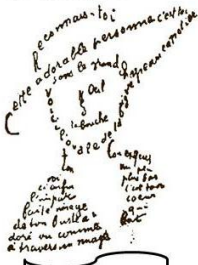 Reconnais-toi
Cette adorable personne c'est toi
Sous le grand chapeau canotier
Œil
Nez
la bouche
Voici l'ovale de ta figure
Ton cou
Voici enfin
l'imparfaite image
de ton buste a
doré vu comme
à travers un nuage
Un peu
plus bas
c'est ton
coeur
qui
bat